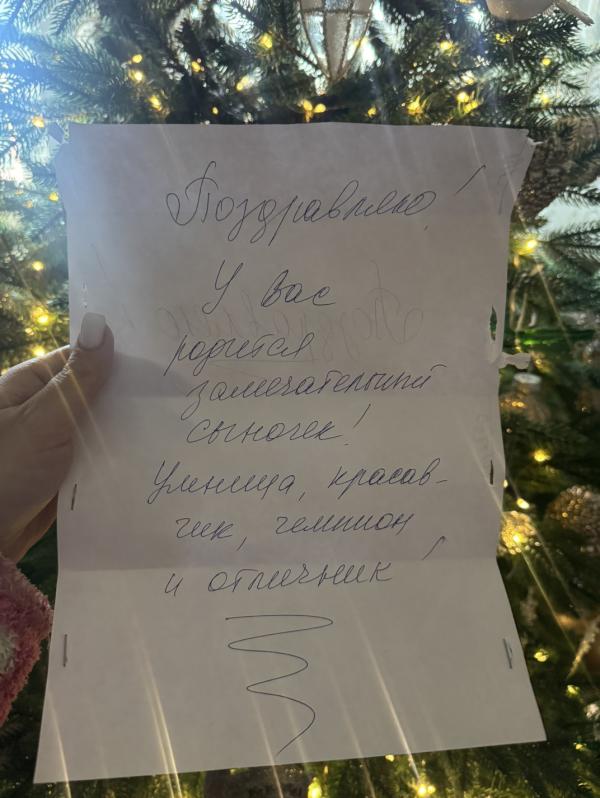 Поздравляю!
У вас
родится
замечательный
сыночек!
Умница, красав-
чик, чемпион
и отличник!